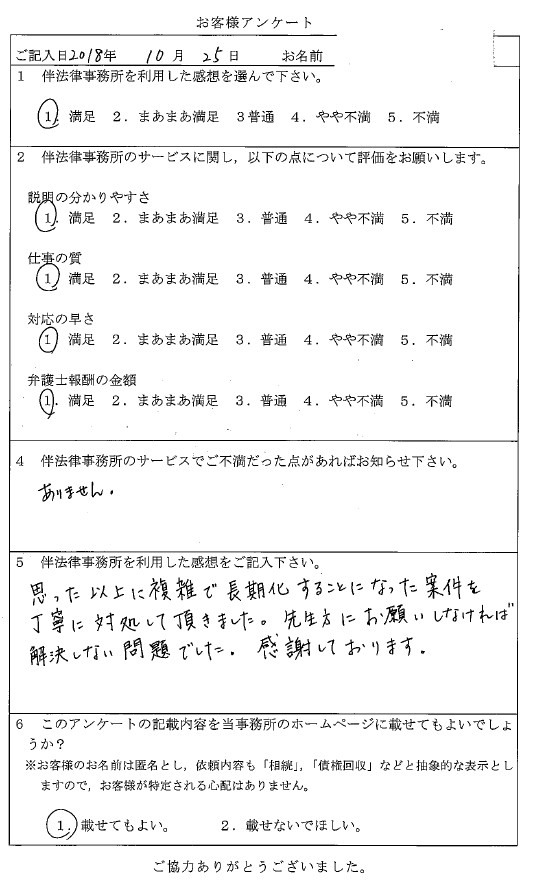 お客様アンケート
ご記入日2018年 10月 25日 お名前
1 伴法律事務所を利用した感想を選んで下さい。
1. 満足 2．まあまあ満足 3普通 4．やや不満 5．不満
2 伴法律事務所のサービスに関し，以下の点について評価をお願いします。
説明の分かりやすさ
1. 満足 2．まあまあ満足 3．普通 4．やや不満 5．不満
仕事の質
1 満足 2．まあまあ満足 3．普通 4．やや不満 5．不満
対応の早さ
1 満足 2．まあまあ満足 3．普通 4．やや不満 5．不満
弁護士報酬の金額
1. 満足 2．まあまあ満足 3．普通 4．やや不満 5．不満
4 伴法律事務所のサービスでご不満だった点があればお知らせ下さい。
ありません。
5 伴法律事務所を利用した感想をご記入下さい。
思った以上に複雑で長期化することになった案件を
丁寧に対処して頂きました。先生方にお願いしなければ
解決しない問題でした。感謝しております。
6 このアンケートの記載内容を当事務所のホームページに載せてもよいでしょ
うか？
※お客様のお名前は匿名とし，依頼内容も「相続」，「債権回収」などと抽象的な表示とし
ますので，お客様が特定される心配はありません。
1. 載せてもよい。 2．載せないでほしい。
ご協力ありがとうございました。